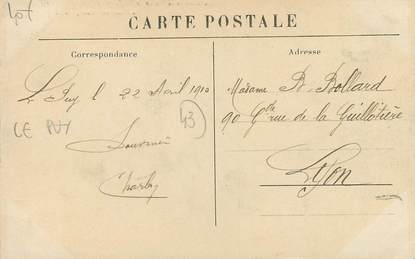 lot
CARTE POSTALE
Correspondance
Adresse
Le Puy le 22 Avril 1910
Souvenir
Charly
LE PUY
43
Madame B. Bollard
90 Gde rue de la Guillotière
Lyon